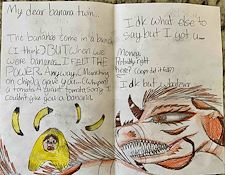 My dear banana twin...
The bananas come in a bunch
(I think) BUT when we
were bananas... I FEEL THE
POWER. Anyway. (Munching
on chips)
a giant tomato. Sorry I
Couldn't give you a banana.
I dk what else to
say but I got u...
Money
Probably right
here?
I dk but